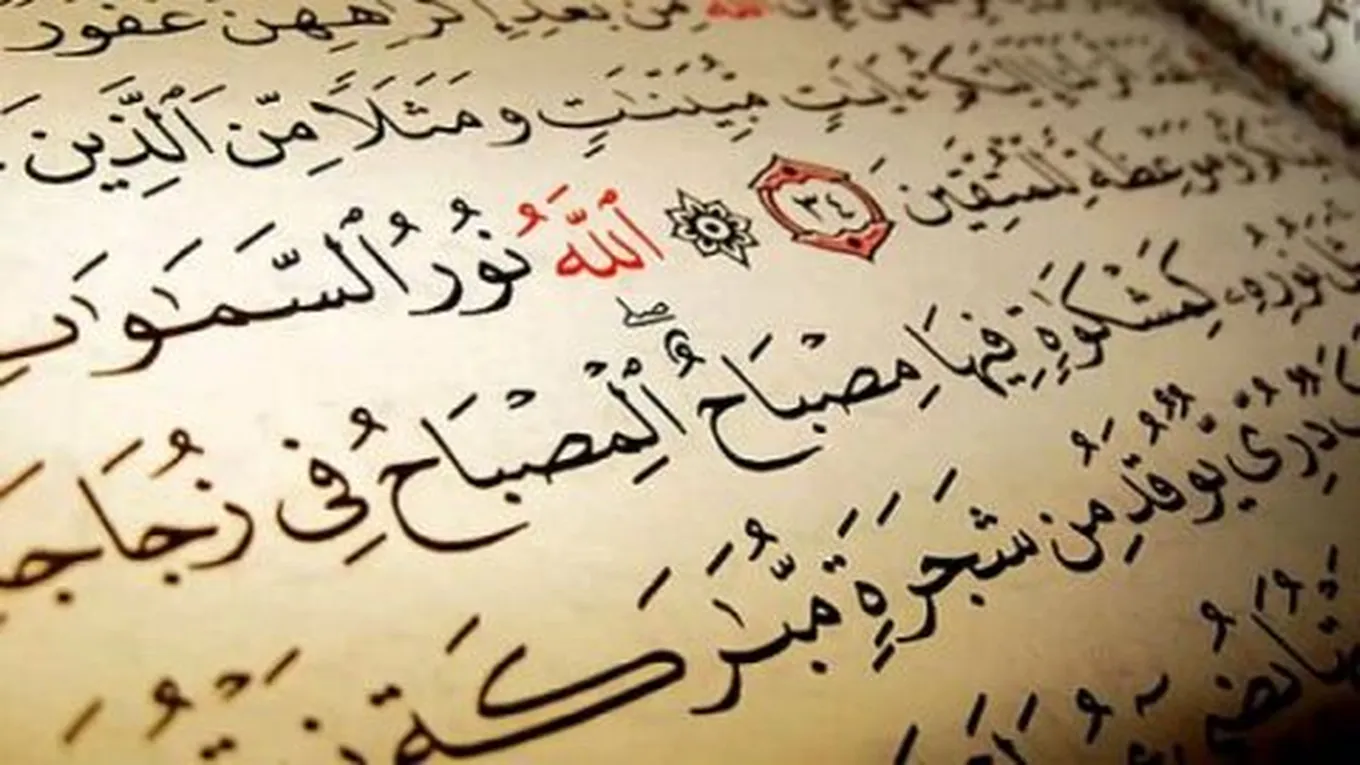 ٱللَّهَ مِنۢ بَعْدِ إِكْرَٰهِهِنَّ غَفُورٌ
إِلَيْكُمْ ءَايَٰتٍ مُّبَيِّنَٰتٍ وَمَثَلًا مِّنَ ٱلَّذِينَ
وَمَوْعِظَةً لِّلْمُتَّقِينَ ٣٤ ۞ ٱللَّهُ نُورُ ٱلسَّمَٰوَٰتِ
نُورِهِۦ كَمِشْكَوٰةٍ فِيهَا مِصْبَاحٌ ۖ ٱلْمِصْبَاحُ فِى
دُرِّىٌّ يُوقَدُ مِن شَجَرَةٍ مُّبَٰرَكَةٍ